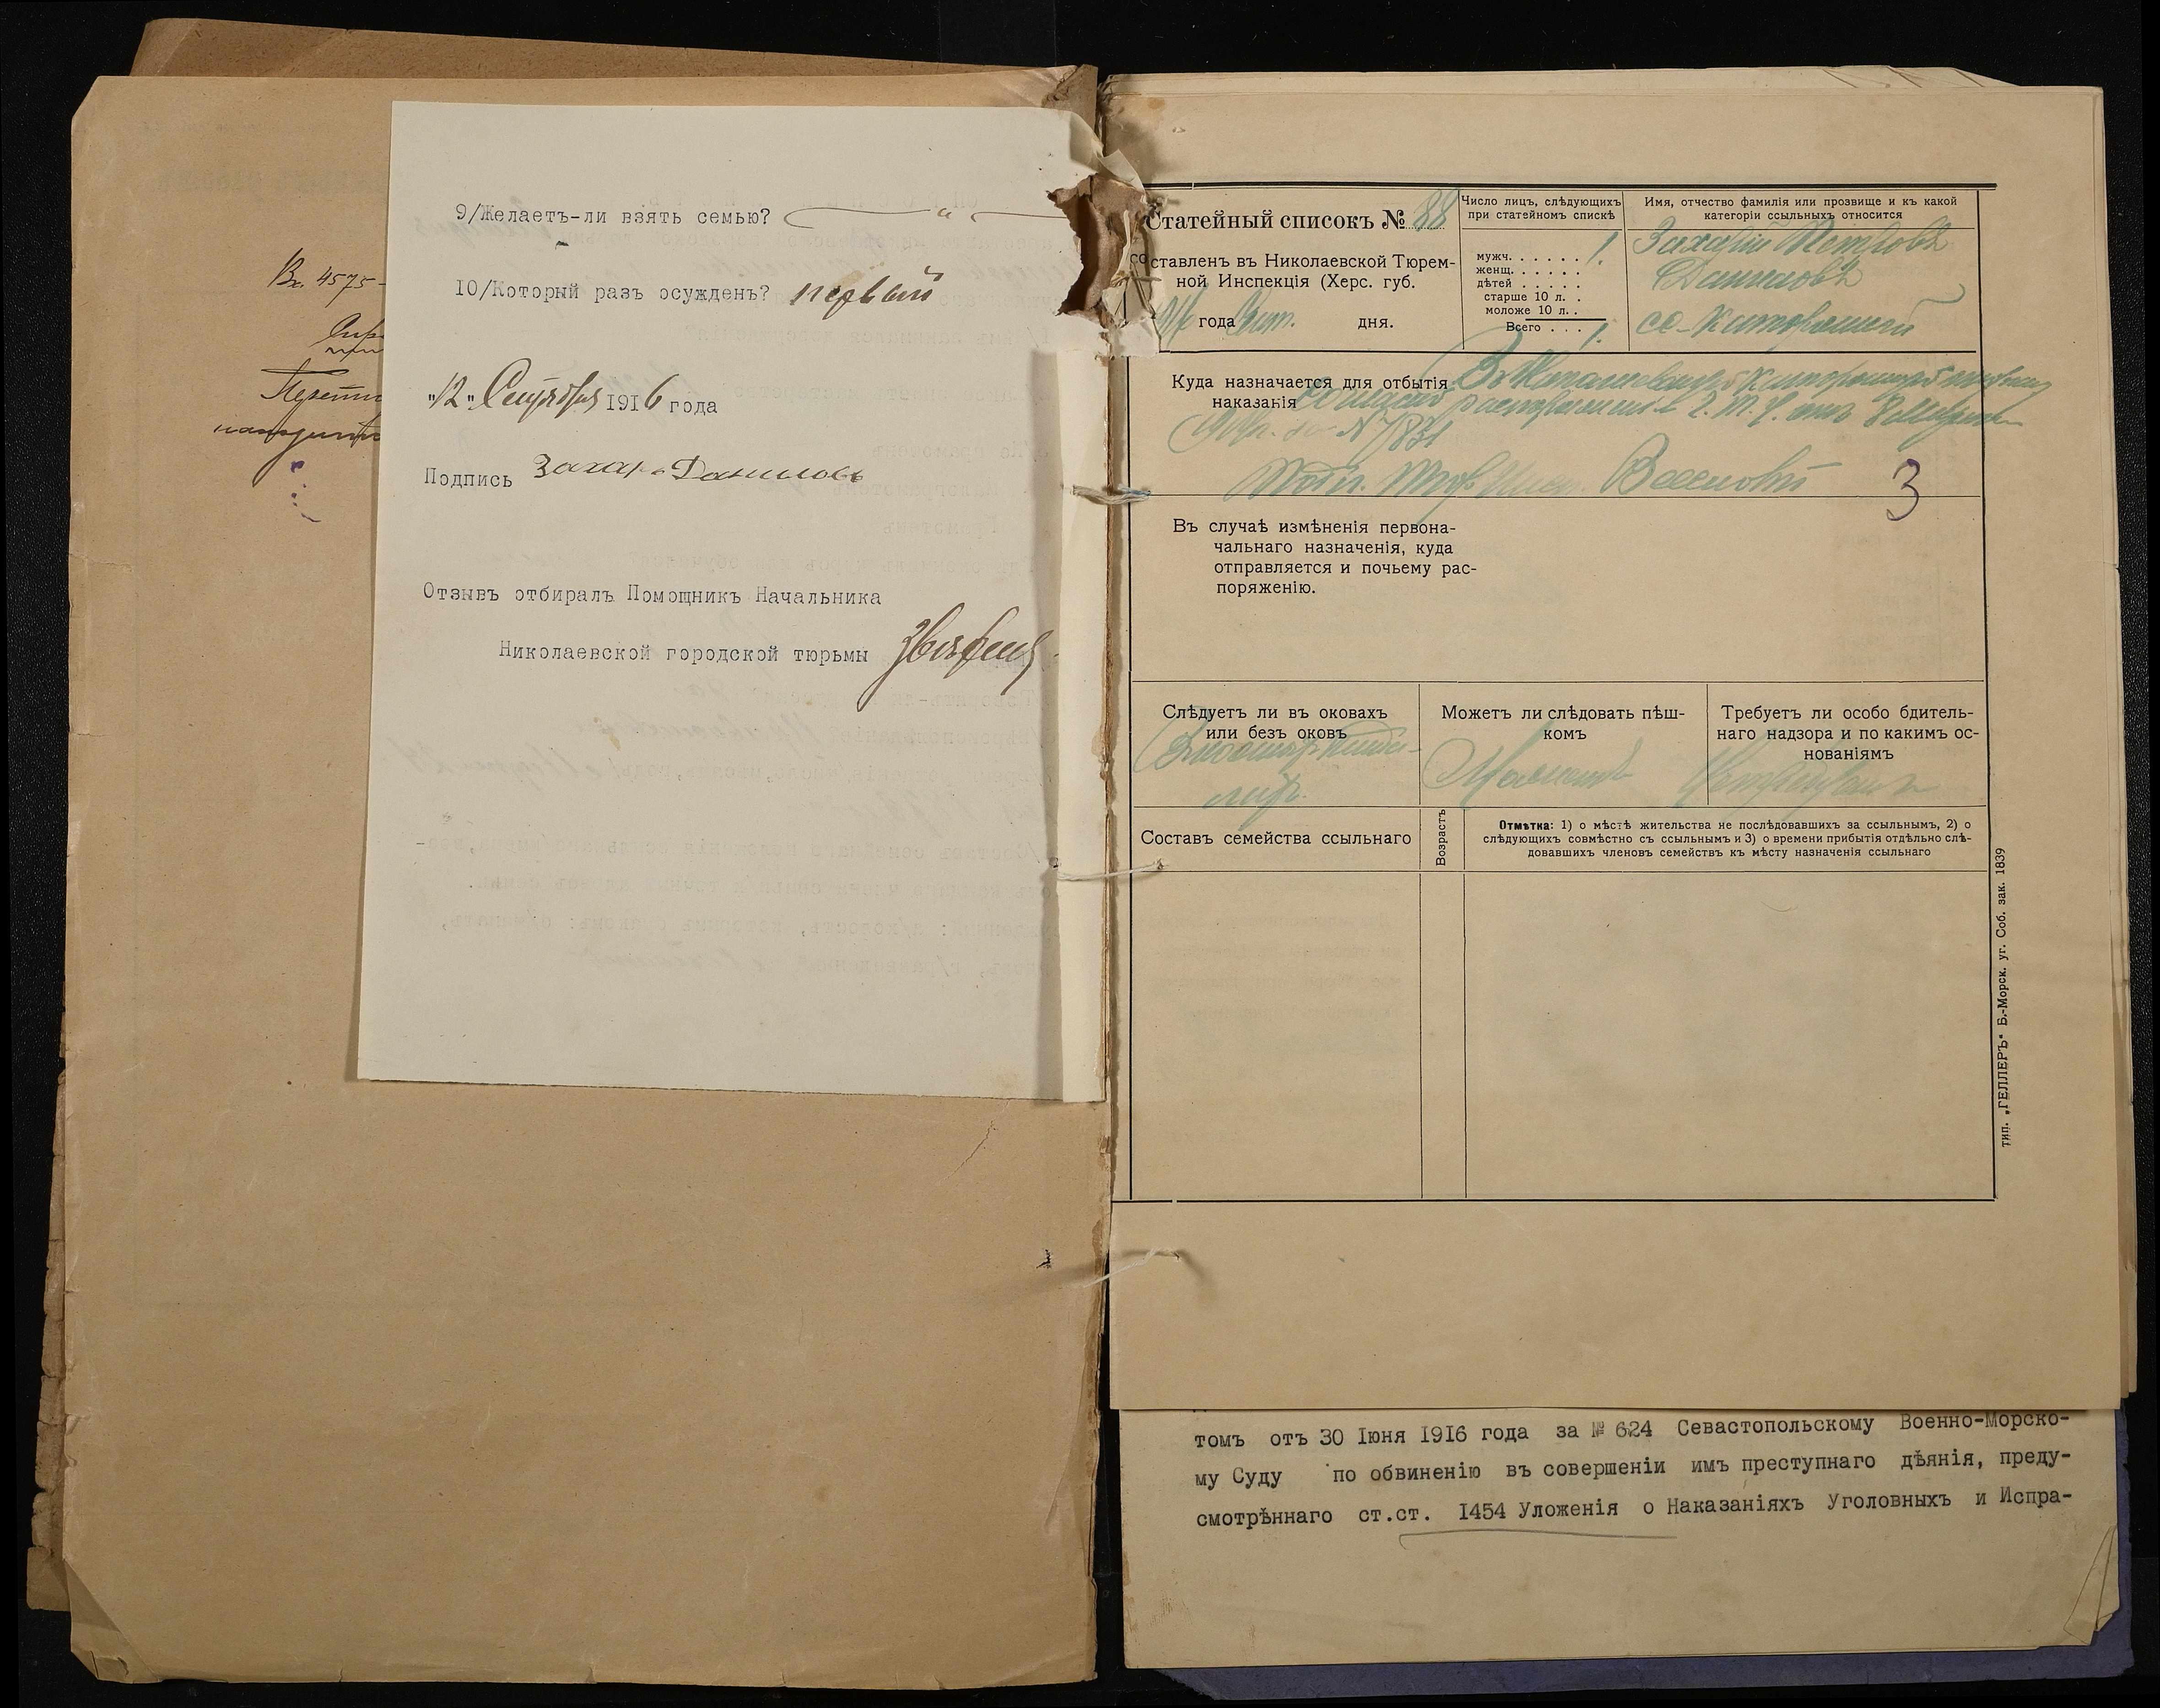 Вх. 4575-
9/Желаетъ-ли взять семью? — " —
10/Который разъ осужденъ? первый
"12" Сентября 1916 года
Подпись Захаръ Даниловъ
Отзывъ отбиралъ Помощникъ Начальника
Николаевской городской тюрьмы
Статейный списокъ № 88
составленъ въ Николаевской Тюрем-
ной Инспекція (Херс. губ.
года дня.
Число лицъ, слѣдующихъ
при статейномъ спискѣ
мужч. . . . . . . 1.
женщ. . . . . . .
дѣтей . . . . .
старше 10 л. . .
моложе 10 л. . .
Всего . . . 1.
Имя, отчество фамилія или прозвище и къ какой
категоріи ссыльныхъ относится
Захарій Петровъ
Даниловъ
сс-каторжный
Куда назначается для отбытія
наказанія
согласно распоряженія Г. Т. У. отъ
за № 7831
3
Въ случаѣ измѣненія первона-
чальнаго назначенія, куда
отправляется и почьему рас-
поряженію.
Слѣдуетъ ли въ оковахъ
или безъ оковъ
Можетъ ли слѣдовать пѣш-
комъ
Можетъ
Требуетъ ли особо бдитель-
наго надзора и по какимъ ос-
нованіямъ
Составъ семейства ссыльнаго
Возрастъ
Отмѣтка: 1) о мѣстѣ жительства не послѣдовавшихъ за ссыльнымъ, 2) о
слѣдующихъ совмѣстно съ ссыльнымъ и 3) о времени прибытія отдѣльно слѣ-
довавшихъ членовъ семействъ къ мѣсту назначенія ссыльнаго
тип. „ГЕЛЛЕРЪ" Б.-Морск. уг. Соб. зак. 1839
томъ отъ 30 Іюня 1916 года за № 624 Севастопольскому Военно-Морско-
му Суду по обвиненію въ совершеніи имъ преступнаго дѣянія, преду-
смотрѣннаго ст.ст. 1454 Уложенія о Наказаніяхъ Уголовныхъ и Испра-